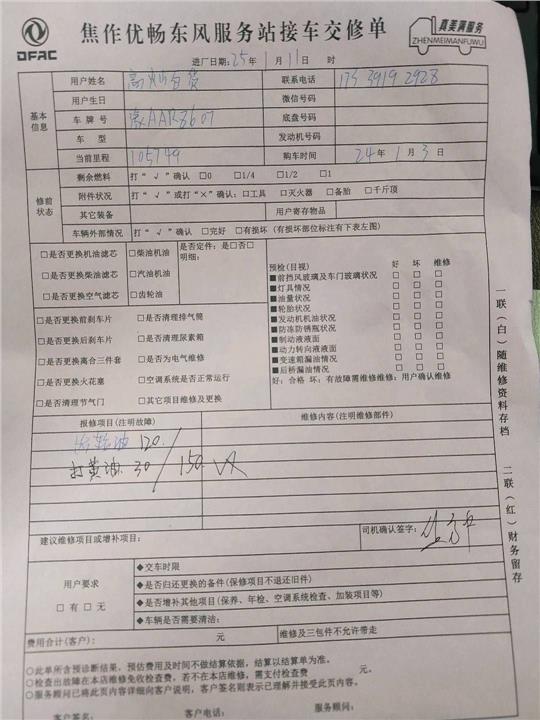 DFAC
焦作优畅东风服务站接车交修单
真美满服务
ZHENMEIMANFUWU
进厂日期: 25年 1月 11日 时
基本信息
用户姓名
联系电话 173 3919 2928
用户生日 微信号码
车牌号 豫AAR8607 底盘号码
车型 发动机号码
当前里程 105749 购车时间 24年 1月 3日
修前状态
剩余燃料 打“√”确认 □0 □1/4 □1/2 □1
附件状况 打“√”或打“×”确认:□工具 □灭火器 □备胎 □千斤顶
其它装备 用户寄存物品
车辆外部情况 打“√”确认 □完好 □有损坏(有损坏部位标注有下表左图)
□是否更换机油滤芯 □柴油机油 是否定件:是□否□
明细:
□是否更换柴油滤芯 □汽油机油
□是否更换空气滤芯 □齿轮油
预检(目视) 好 坏 维修
■前挡风玻璃及车门玻璃状况 □ □ □
■灯具情况 □ □ □
■油量状况 □ □ □
■轮胎状况 □ □ □
■发动机机油状况 □ □ □
■防冻防锈瓶状况 □ □ □
■制动液液面 □ □ □
■动力转向液液面 □ □ □
■变速箱漏油情况 □ □ □
■后桥漏油情况 □ □ □
好:合格 坏:有故障需维修维修:用户确认维修
□是否更换前刹车片 □是否清理排气筒
□是否更换后刹车片 □是否清理尿素箱
□是否更换离合三件套 □是否为电气维修
□是否更换火花塞 □空调系统是否正常运行
□是否清理节气门 □其它项目维修及更换
报修项目(注明故障) 维修内容(注明维修部件)
齿轮油 120
打黄油 30 / 150
建议维修项目或增补项目: 司机确认签字:
用户要求
□有□无
◆交车时限
◆是否归还更换的备件(保修项目不退还旧件)
◆是否增补其他项目(保养、年检、空调系统检查、加装项目等)
◆车辆是否需要清洁:
费用合计(客户): 元 维修及三包件不允许带走
○此单所含预诊断结果,预估费用及时间不做结算依据,结算以结算单为准。
○检查出故障在本店维修免收检查费,若不在本店维修,需支付检查费 元。
○服务顾问已将此页内容详细向客户说明,客户签名则表示已理解并接受此页内容。
客户签名: 客户电话: 服务顾问:
一联(白)随维修资料存档 二联(红)财务留存